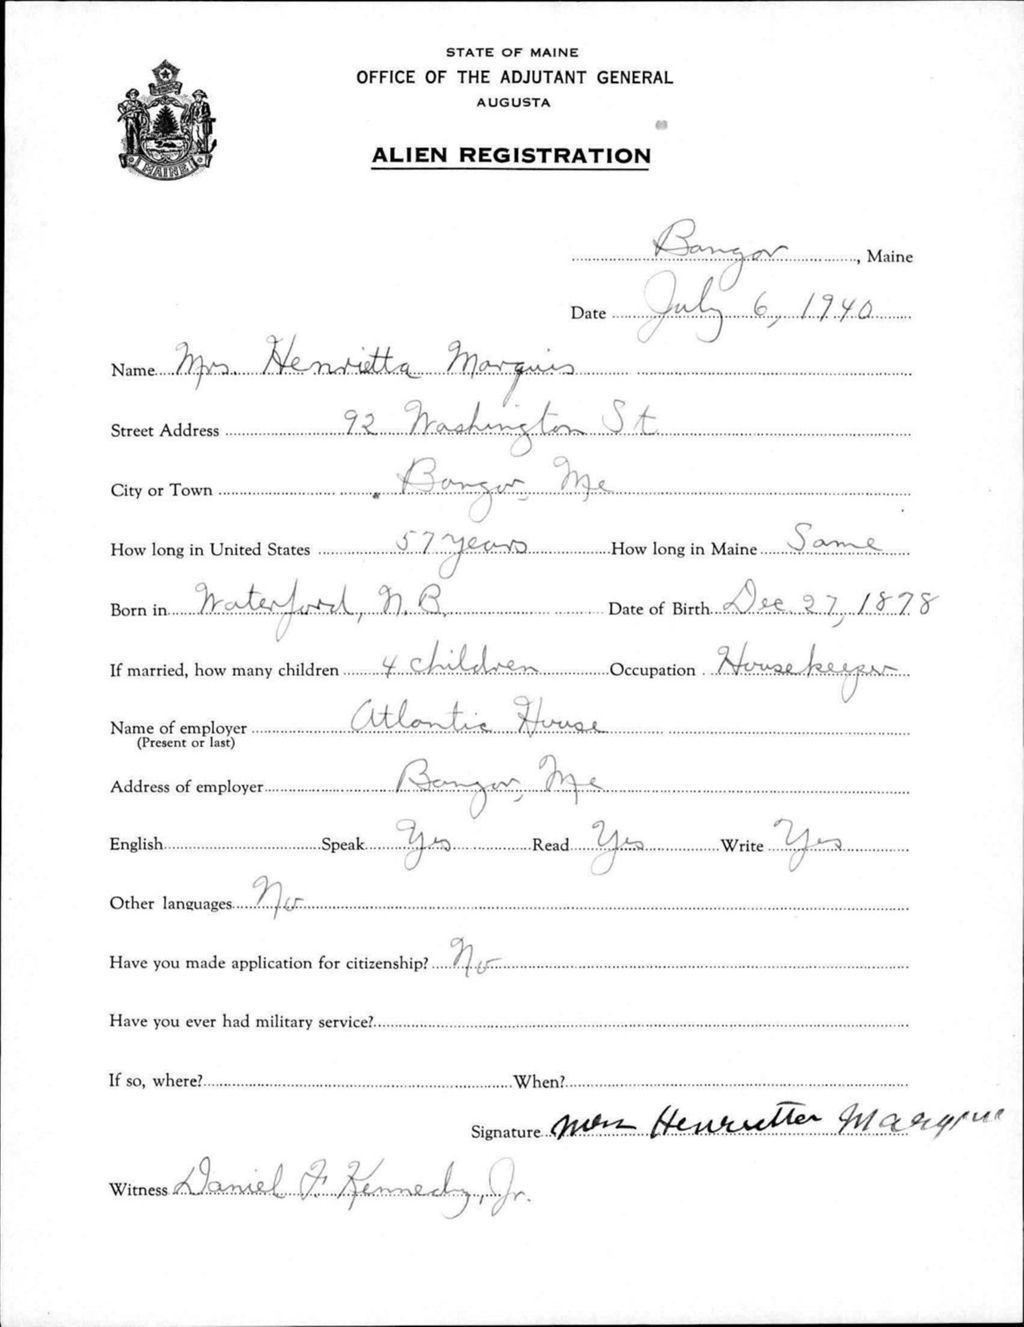 STATE OF MAINE
OFFICE OF THE ADJUTANT GENERAL
AUGUSTA
ALIEN REGISTRATION
MAINE
Bangor, Maine
Date July 6, 1940
Name Mrs. Henrietta Marquis
Street Address 92 Washington St
City or Town Bangor, Me
How long in United States 57 years How long in Maine Same
Born in Waterford, N.B. Date of Birth Dec 27, 1878
If married, how many children 4 children Occupation Housekeeper
Name of employer Atlantic House
(Present or last)
Address of employer Bangor, Me
English Speak Yes Read Yes Write Yes
Other languages No
Have you made application for citizenship? No
Have you ever had military service?
If so, where? When?
Signature Mrs Henrietter Marquis
Witness Daniel F. Kennedy, Jr.